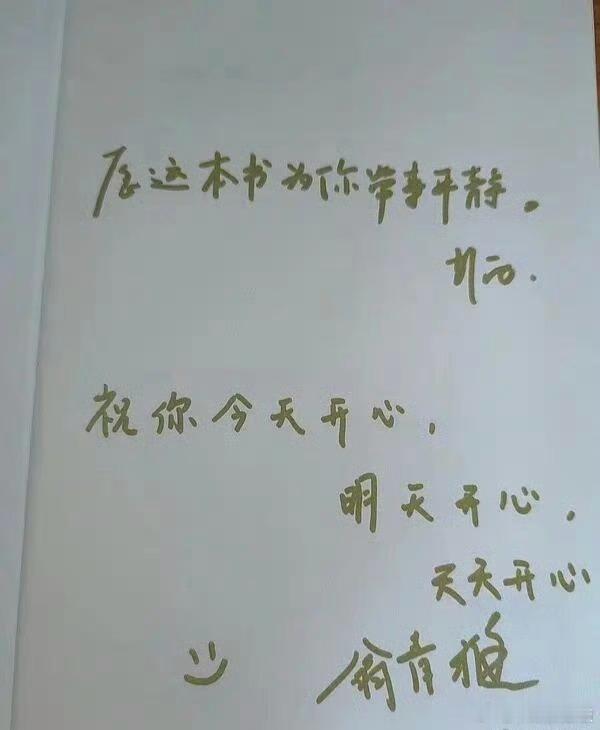 愿这本书为你带来平静。
祝你今天开心，
明天开心，
天天开心
翁青雅